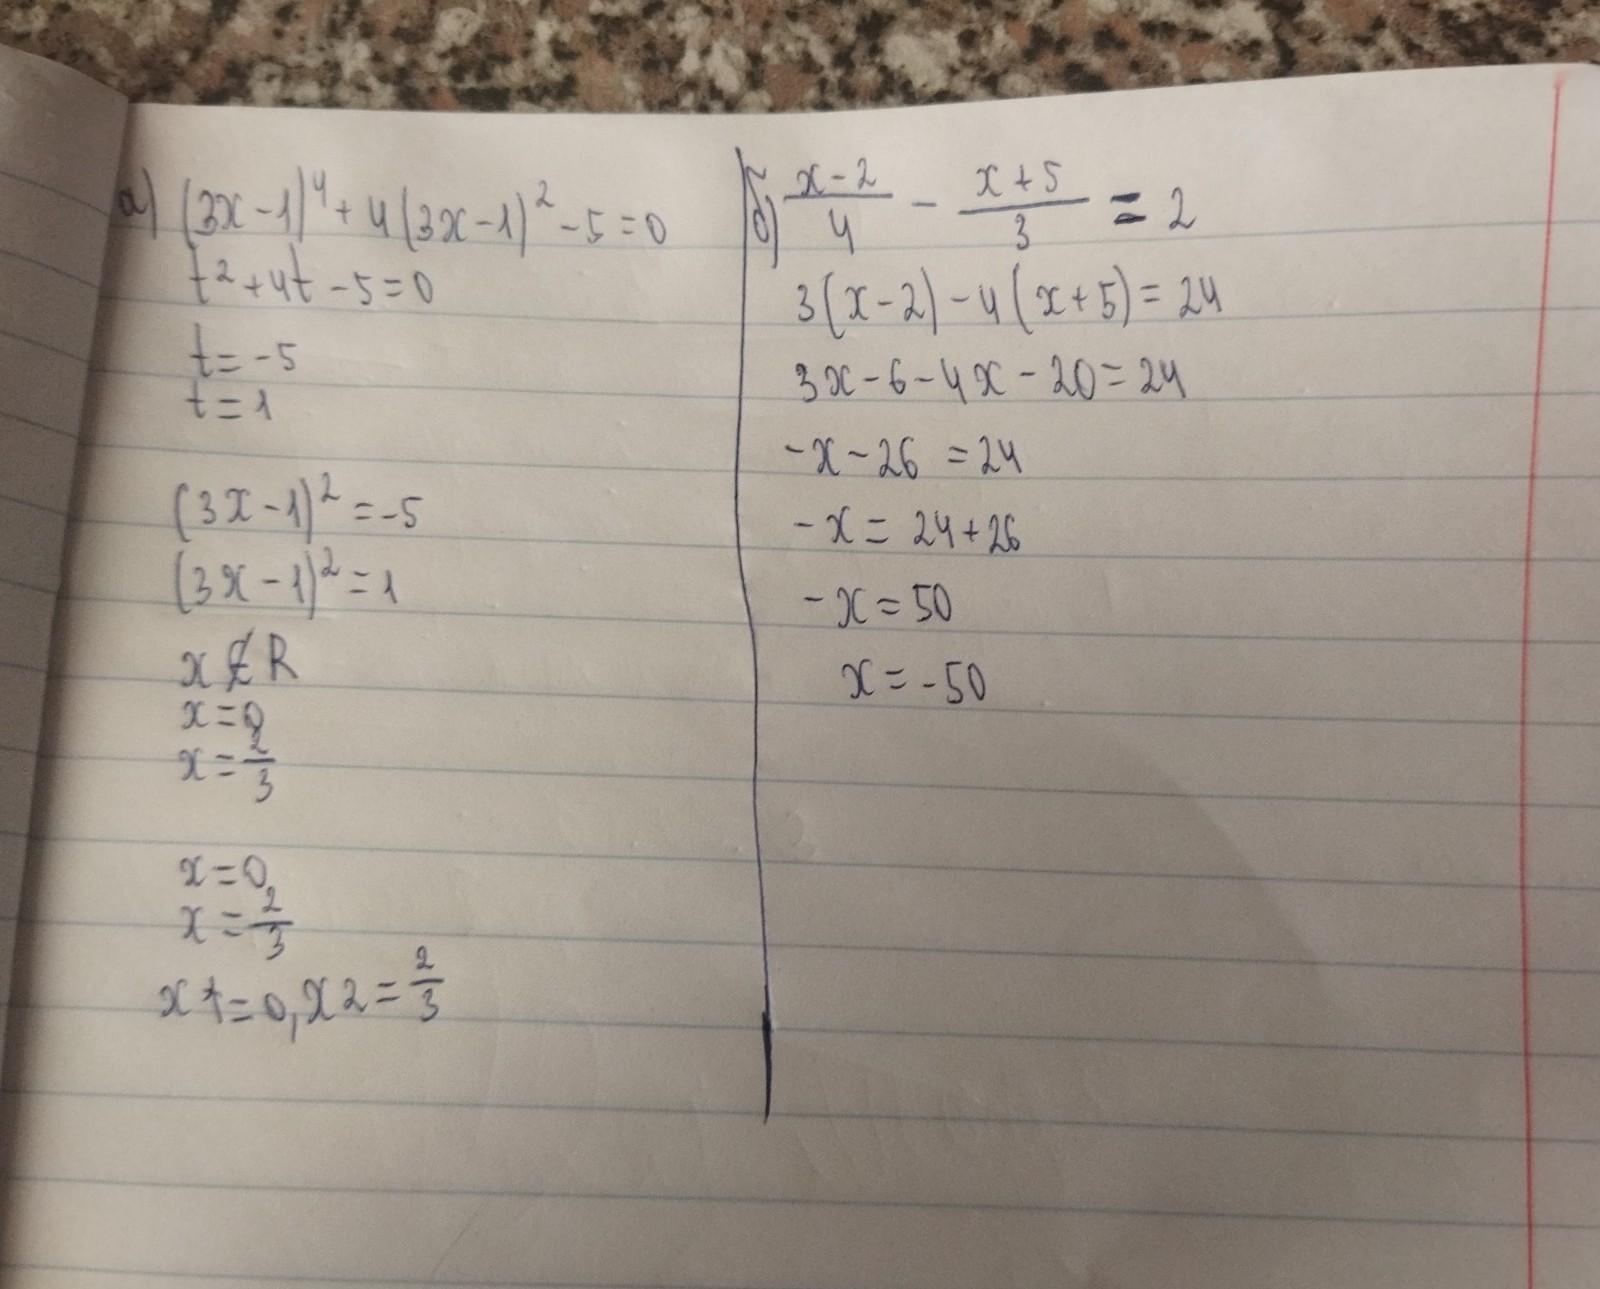 а) (3x-1)⁴+4(3x-1)²-5=0
t²+4t-5=0
t=-5
t=1
(3x-1)²=-5
(3x-1)²=1
x∉R
x=0
x=2/3
x=0,
x=2/3
x1=0, x2=2/3
б) (x-2)/4 - (x+5)/3 = 2
3(x-2)-4(x+5)=24
3x-6-4x-20=24
-x-26=24
-x=24+26
-x=50
x=-50